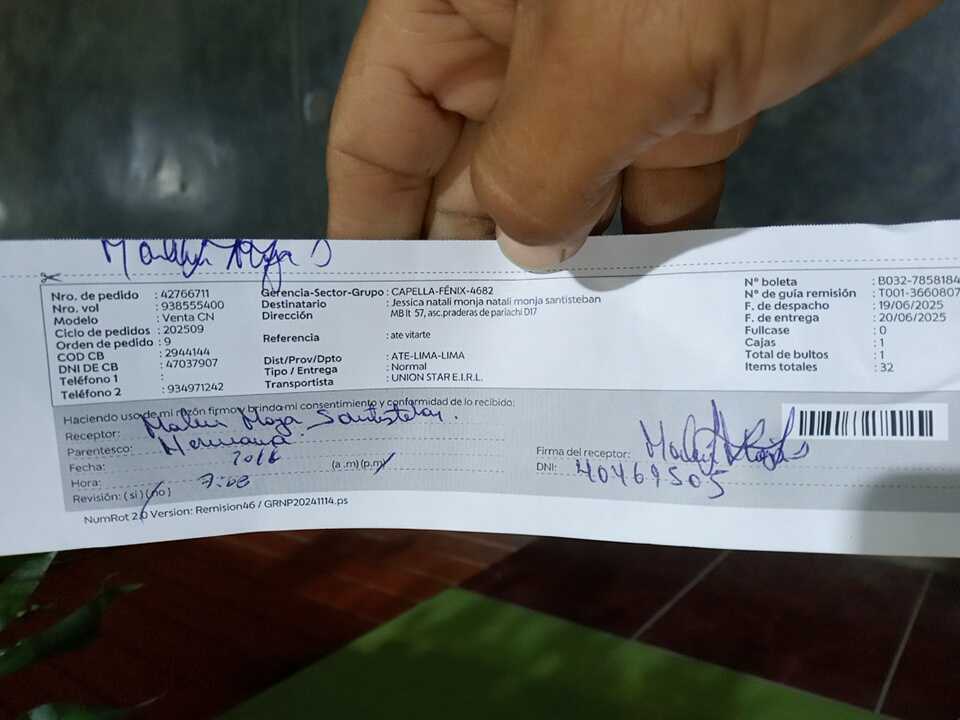 Nro. de pedido : 42766711
Nro. vol : 938555400
Modelo : Venta CN
Ciclo de pedidos : 202509
Orden de pedido : 9
COD CB : 2944144
DNI DE CB : 47037907
Teléfono 1 :
Teléfono 2 : 934971242
Gerencia-Sector-Grupo : CAPELLA-FÉNIX-4682
Destinatario : Jessica natali monja natali monja santisteban
Dirección MB lt 57, asc.praderas de pariachi D17
Referencia : ate vitarte
Dist/Prov/Dpto : ATE-LIMA-LIMA
Tipo / Entrega : Normal
Transportista : UNION STAR E.I.R.L.
N° boleta : B032-7858184
N° de guía remisión : T001-3660807
F. de despacho : 19/06/2025
F. de entrega : 20/06/2025
Fullcase : 0
Cajas : 1
Total de bultos : 1
Items totales : 32
Haciendo uso de mi razón firmo y brindo mi consentimiento y conformidad de lo recibido:
Receptor:
Parentesco: Hermana
Fecha:
Hora: (a.m) (p.m)
Revisión: (si) (no)
Firma del receptor:
DNI: 40469505
NumRot 2.0 Version: Remision46 / GRNP20241114.ps